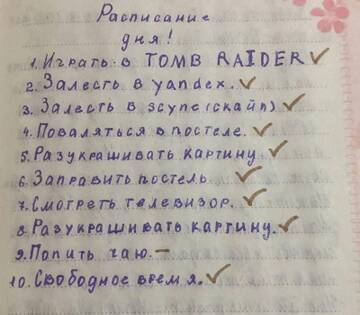 Расписание
дня!
1. Играть в TOMB RAIDER ✓
2. Залесть в yandex. ✓
3. Залесть в scype(скайп) ✓
4. Поваляться в постеле. ✓
5. Разукрашивать картину. ✓
6. Заправить постель ✓
7. Смотреть телевизор. ✓
8. Разукрашивать картину. ✓
9. Попить чаю. –
10. Свободное время. ✓